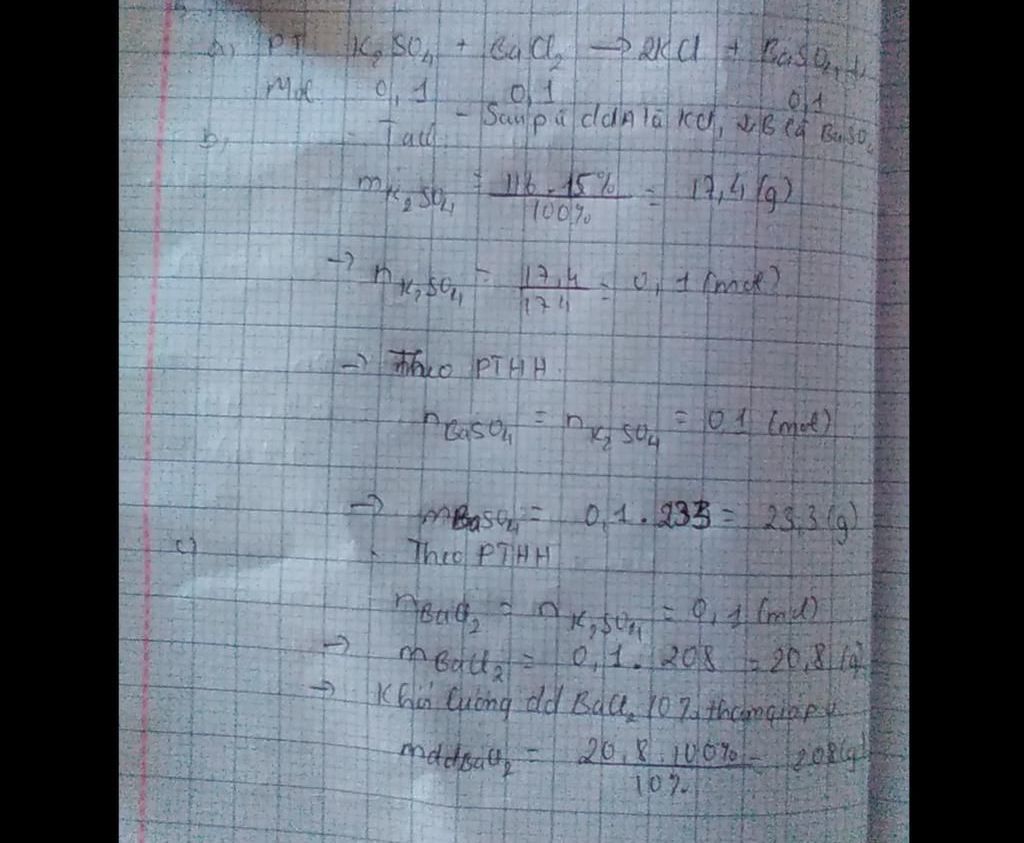 a) PT K₂SO₄ + BaCl₂ → 2KCl + BaSO₄ ↓
Mol 0,1 0,1 0,1
- Sau pứ ddA là KCl, B là BaSO₄
b) Ta có
mK₂SO₄ = 116 . 15% / 100% = 17,4 (g)
→ nK₂SO₄ = 17,4 / 174 = 0,1 (mol)
→ Theo PTHH
nBaSO₄ = nK₂SO₄ = 0,1 (mol)
→ mBaSO₄ = 0,1 . 233 = 23,3 (g)
c) Theo PTHH
nBaCl₂ = nK₂SO₄ = 0,1 (mol)
→ mBaCl₂ = 0,1 . 208 = 20,8 (g)
→ Khối lượng dd BaCl₂ 10% tham gia pứ
mddBaCl₂ = 20,8 . 100% / 10% = 208 (g)